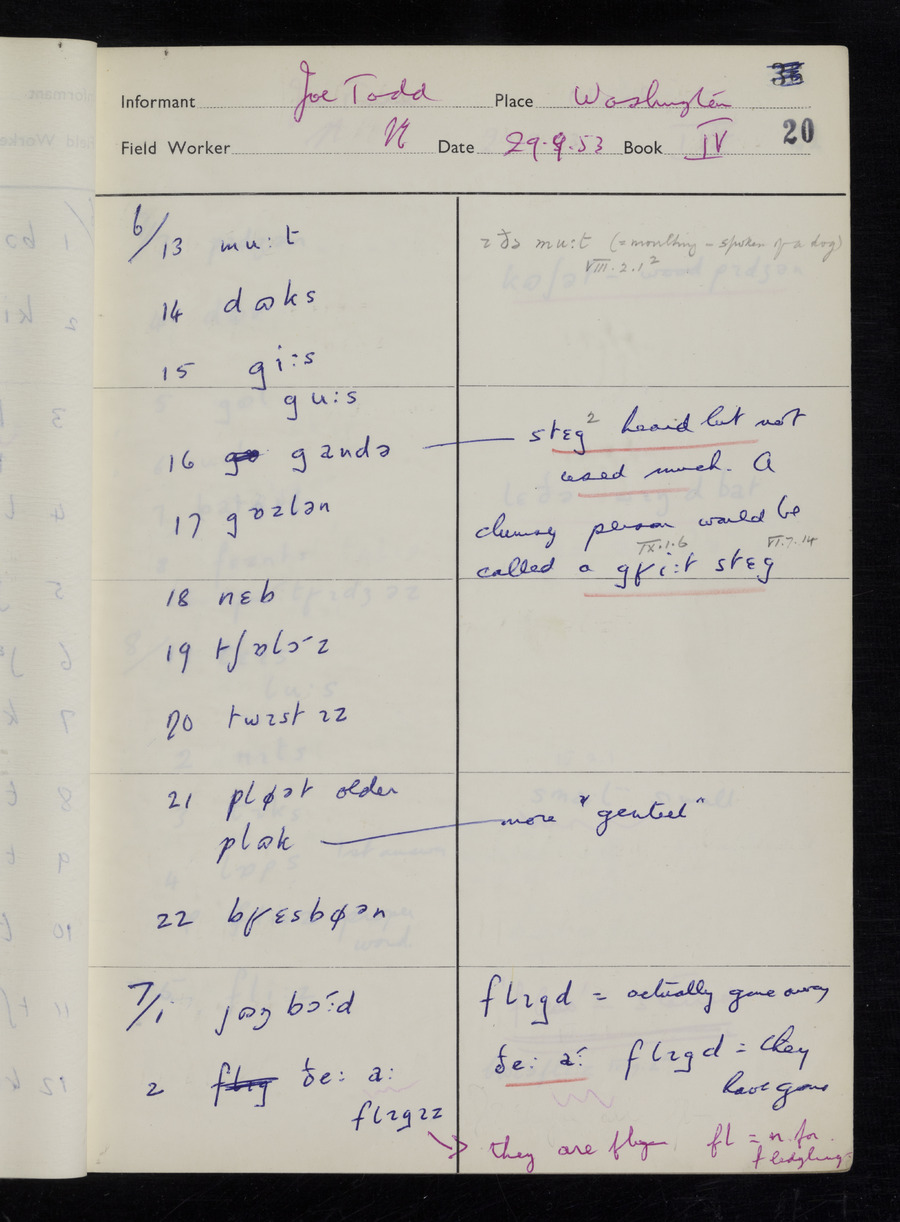 Informant Joe Todd Place Washington
Field Worker N Date 29.9.53 Book IV 20
6/13 mu:t
ɪ ðə mu:t (= mouthing – spoken of a dog)
VIII.2.1²
14 dɷks
15 gi:s
gu:s
16 gandə steg² heard but not
used much. A
17 gɒzlən
clumsy person would be
IX.1.6 VI.7.14
called a gʁi:t stɛg
18 nɛb
19
20 twɪstɪz
21 pløət older
plɷk more "genteel"
22 bʁɛsbøən
7/1 jɷŋ bɔ:d
flɪgd = actually gone away
2 ðe: a:
ðe: a: flɪgd = they
have gone
flɪgɪz
they are fl = n. for
fledgling